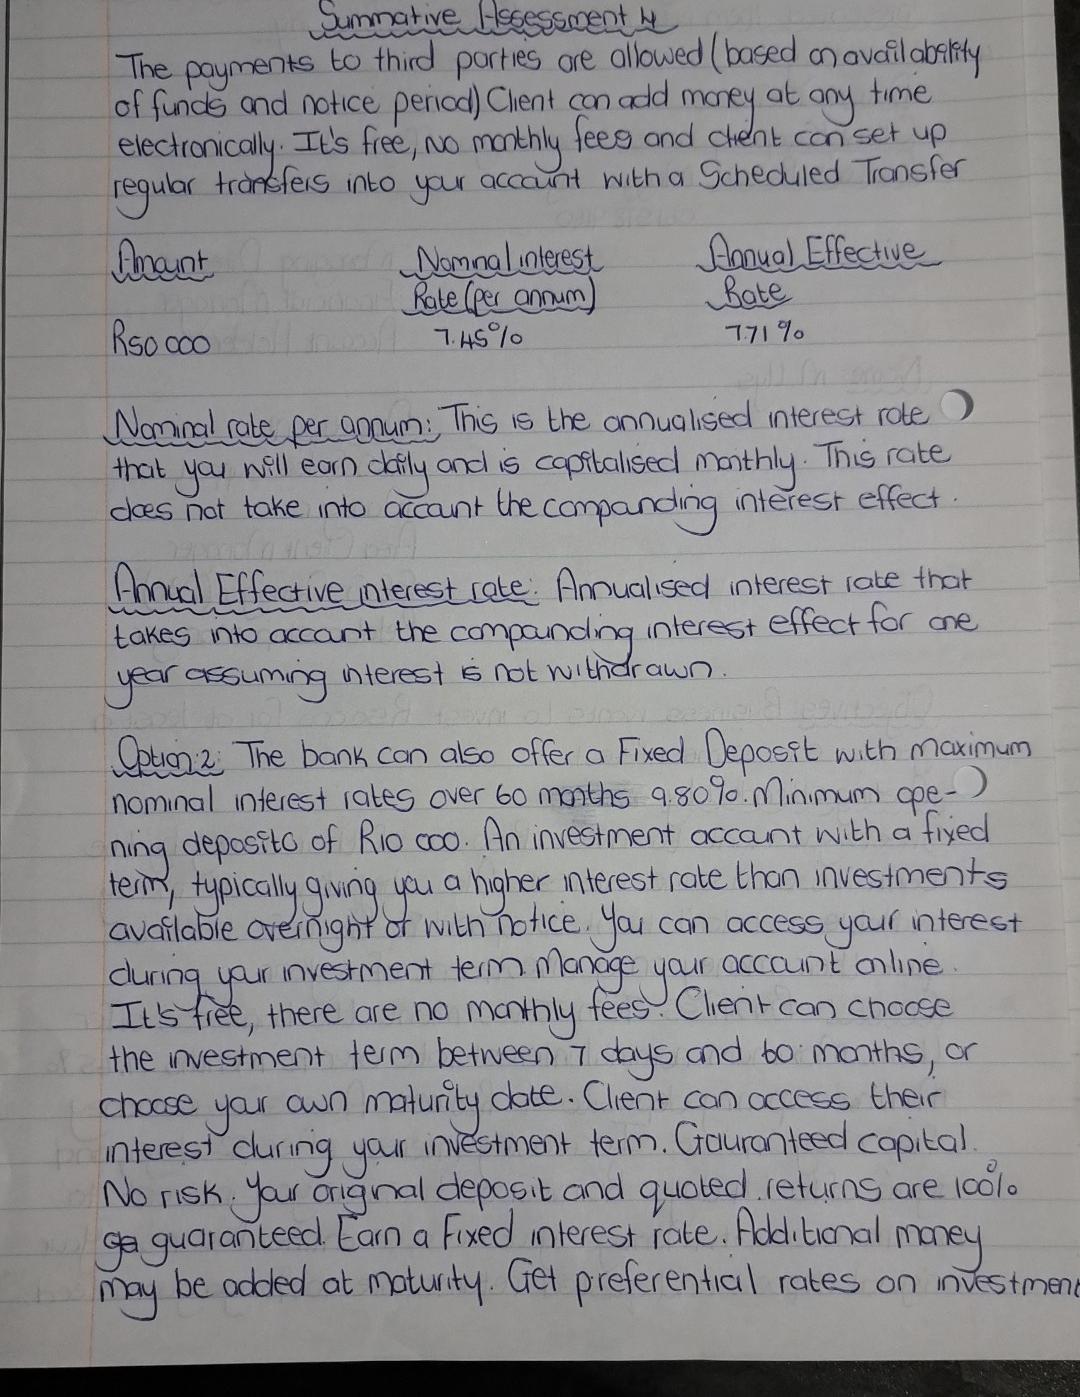 Summative Assessment 4
The payments to third parties are allowed (based on availability
of funds and notice period) Client can add money at any time
electronically. It's free, no monthly fees and client can set up
regular transfers into your account with a Scheduled Transfer
Amount Nominal interest Annual Effective
Rate (per annum) Rate
R50 000 7.45% 7.71%
Nominal rate per annum: This is the annualised interest rate
that you will earn daily and is capitalised monthly. This rate
does not take into account the compounding interest effect.
Annual Effective interest rate: Annualised interest rate that
takes into account the compounding interest effect for one
year assuming interest is not withdrawn.
Option:2: The bank can also offer a Fixed Deposit with maximum
nominal interest rates over 60 months 9.80%. Minimum ope-
ning deposito of R10 000. An investment account with a fixed
term, typically giving you a higher interest rate than investments
available overnight or with notice. You can access your interest
during your investment term. Manage your account online.
It's free, there are no monthly fees. Client can choose
the investment term between 7 days and 60 months, or
choose your own maturity date. Client can access their
interest during your investment term. Gauranteed capital.
No risk. Your original deposit and quoted returns are 100%
guaranteed. Earn a fixed interest rate. Additional money
may be added at maturity. Get preferential rates on investment